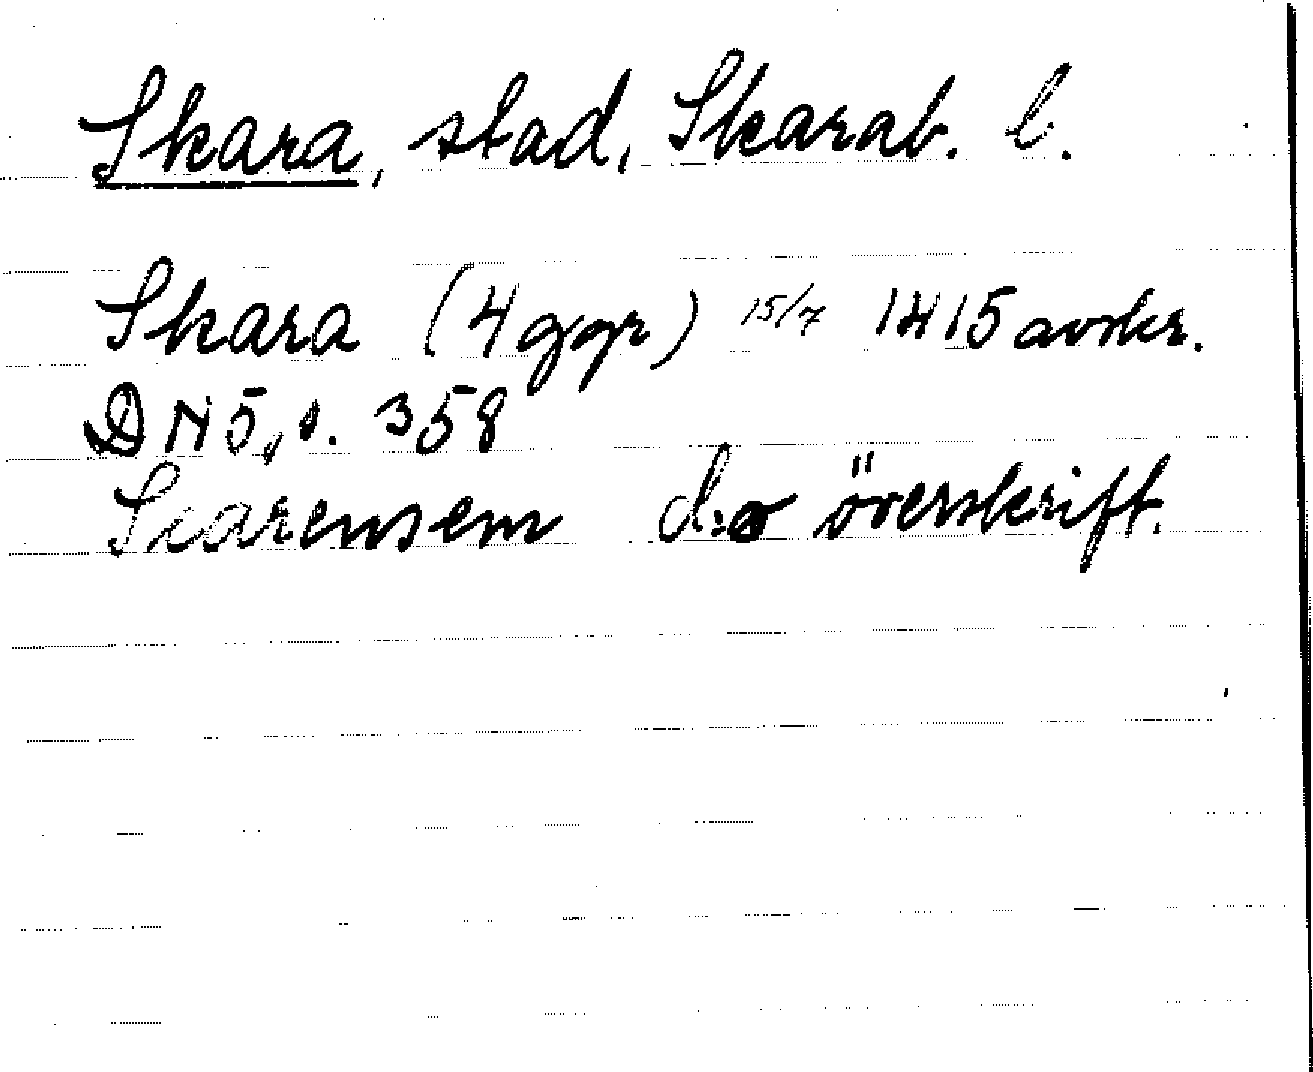 Skara, stad, Skarab. l.
Skara (4 ggr) 15/7 1415 avskr.
DN 5, s. 358
Scarensem d:o överskrift.